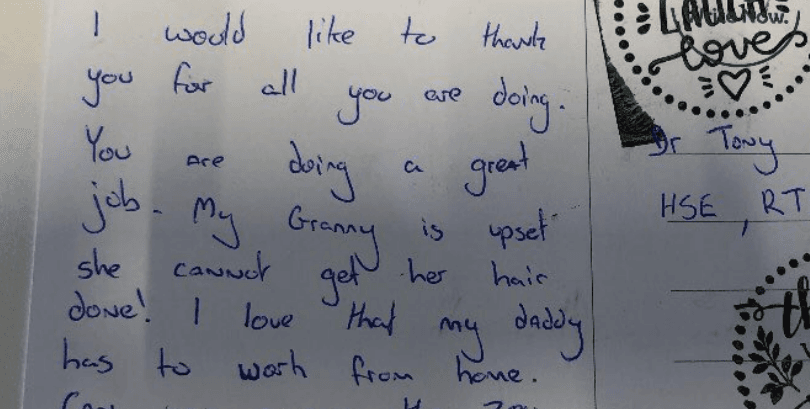 I would like to thank
you for all you are doing.
You are doing a great
job. My Granny is upset
she cannot get her hair
done! I love that my daddy
has to work from home.
love
Dr Tony
HSE, RT